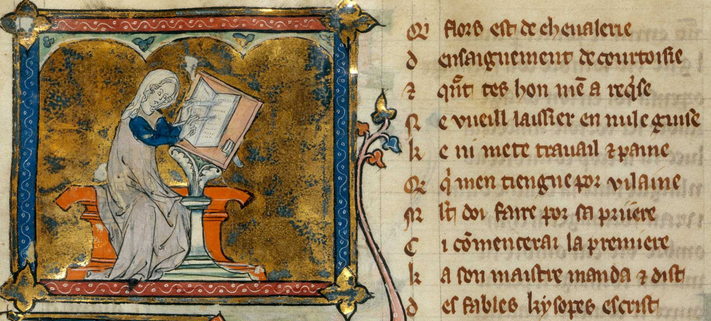 Qi flors est de chevalerie
d ensaignement de courtoisie
⁊ qñt tes hon mē a reqͥse
N e vueill laissier en nule guise
k e ni mete travail ⁊ paine
Q q̇ men tiengne por vilaine
M lt doi faire por sa priiere
C i cōmencerai la premiere
k a son maistre manda ⁊ dist
d es fables kysopes escrist